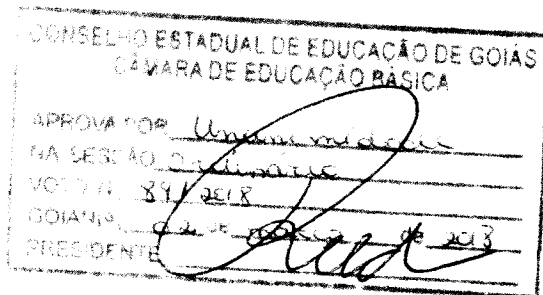 CONSELHO ESTADUAL DE EDUCAÇÃO DE GOIÁS
CÂMARA DE EDUCAÇÃO BÁSICA
APROVA POR Unanimidade
NA SESSÃO Ordinária
VOTO N. 89/2018
GOIANIA, 02 DE de
PRESIDENTE